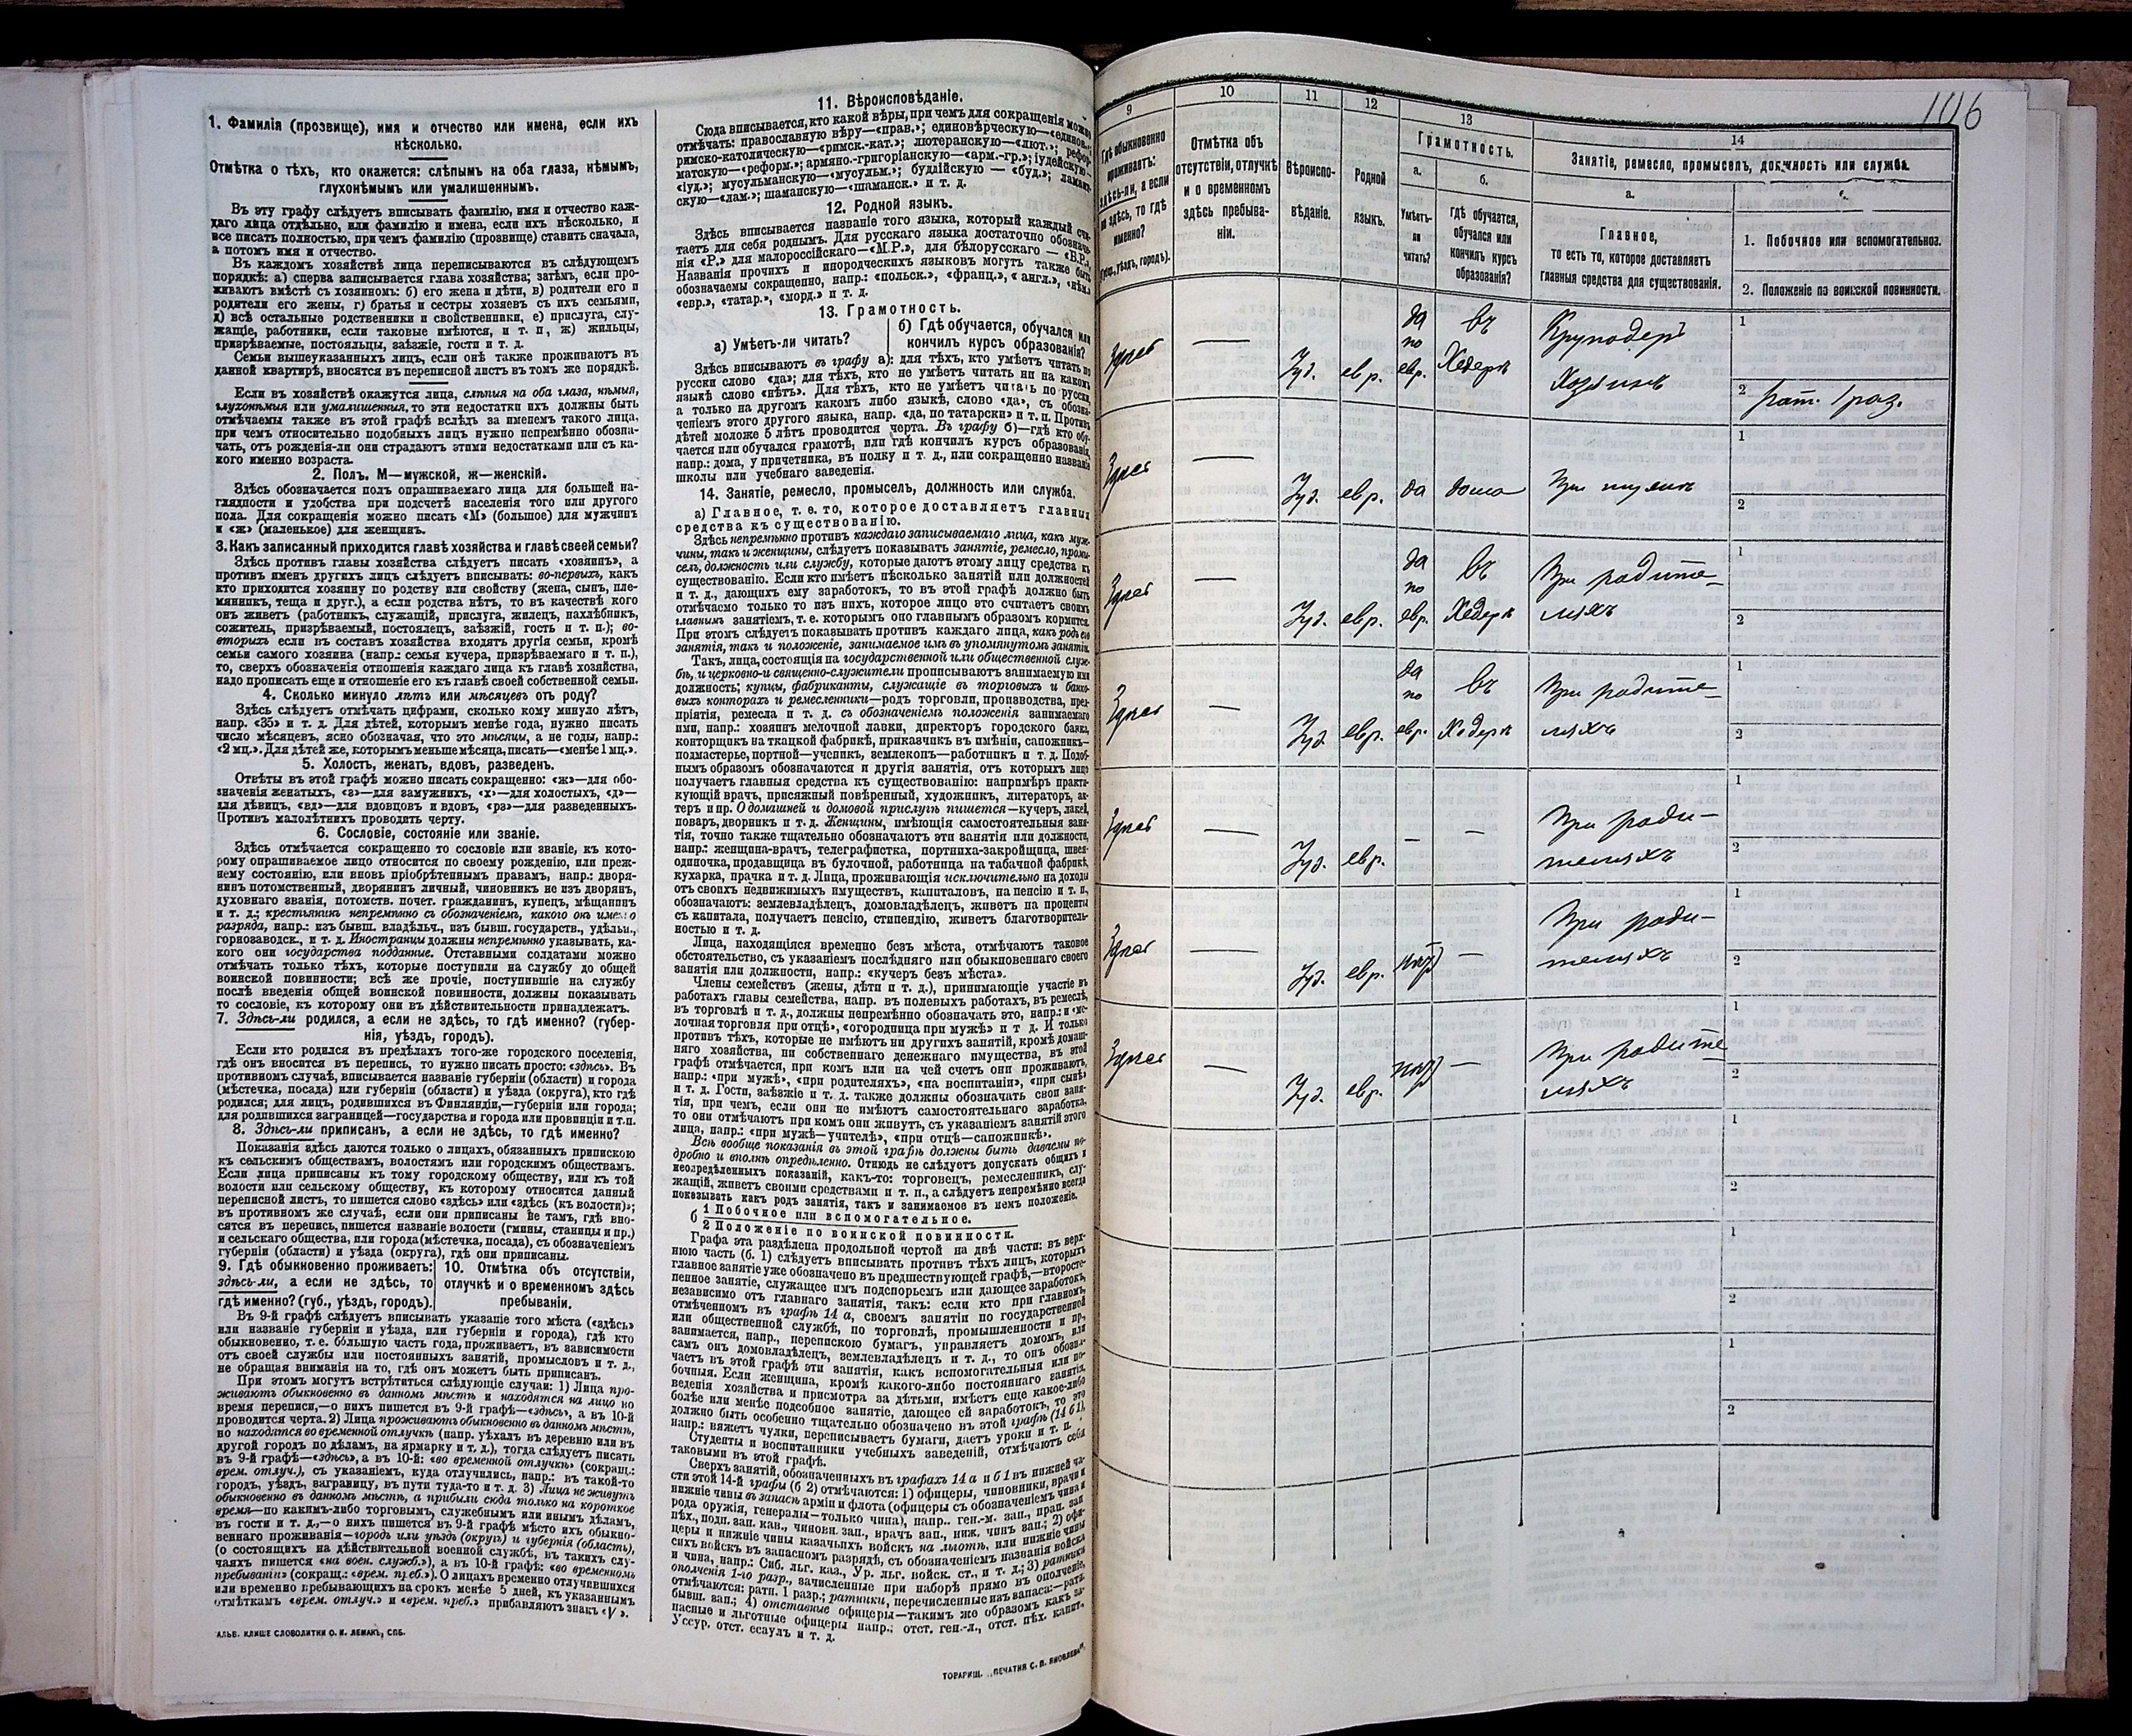 1. Фамилія (прозвище), имя и отчество или имена, если ихъ
нѣсколько.
Отмѣтка о тѣхъ, кто окажется: слѣпымъ на оба глаза, нѣмымъ,
глухонѣмымъ или умалишеннымъ.
Въ эту графу слѣдуетъ вписывать фамилію, имя и отчество каж-
даго лица отдѣльно, или фамилію и имена, если ихъ нѣсколько, и
все писать полностью, при чемъ фамилію (прозвище) ставить сначала,
а потомъ имя и отчество.
Въ каждомъ хозяйствѣ лица переписываются въ слѣдующемъ
порядкѣ: а) сперва записывается глава хозяйства; затѣмъ, если про-
живаютъ вмѣстѣ съ хозяиномъ: б) его жена и дѣти, в) родители его и
родители его жены, г) братья и сестры хозяевъ съ ихъ семьями,
д) всѣ остальные родственники и свойственники, е) прислуга, слу-
жащіе, работники, если таковые имѣются, и т. п, ж) жильцы,
призрѣваемые, постояльцы, заѣзжіе, гости и т. д.
Семьи вышеуказанныхъ лицъ, если онѣ также проживаютъ въ
данной квартирѣ, вносятся въ переписной листъ въ томъ же порядкѣ.
Если въ хозяйствѣ окажутся лица, слѣпыя на оба глаза, нѣмыя,
глухонѣмыя или умалишенныя, то эти недостатки ихъ должны быть
отмѣчаемы также въ этой графѣ вслѣдъ за именемъ такого лица,
при чемъ относительно подобныхъ лицъ нужно непремѣнно обозна-
чать, отъ рожденія-ли они страдаютъ этими недостатками или съ ка-
кого именно возраста.
2. Полъ. М—мужской, ж—женскій.
Здѣсь обозначается полъ опрашиваемаго лица для большей на-
глядности и удобства при подсчетѣ населенія того или другого
пола. Для сокращенія можно писать «М» (большое) для мужчинъ
и «ж» (маленькое) для женщинъ.
3. Какъ записанный приходится главѣ хозяйства и главѣ своей семьи?
Здѣсь противъ главы хозяйства слѣдуетъ писать «хозяинъ», а
противъ именъ другихъ лицъ слѣдуетъ вписывать: во-первыхъ, какъ
кто приходится хозяину по родству или свойству (жена, сынъ, пле-
мянникъ, теща и друг.), а если родства нѣтъ, то въ качествѣ кого
онъ живетъ (работникъ, служащій, прислуга, жилецъ, нахлѣбникъ,
сожитель, призрѣваемый, постоялецъ, заѣзжій, гость и т. п.); во-
вторыхъ если въ составъ хозяйства входятъ другія семьи, кромѣ
семьи самого хозяина (напр.: семья кучера, призрѣваемаго и т. п.),
то, сверхъ обозначенія отношенія каждаго лица къ главѣ хозяйства,
надо прописать еще и отношеніе его къ главѣ своей собственной семьи.
4. Сколько минуло лѣтъ или мѣсяцевъ отъ роду?
Здѣсь слѣдуетъ отмѣчать цифрами, сколько кому минуло лѣтъ,
напр. «35» и т. д. Для дѣтей, которымъ менѣе года, нужно писать
число мѣсяцевъ, ясно обозначая, что это мѣсяцы, а не годы, напр.:
«2 мц.». Для дѣтей же, которымъ меньше мѣсяца, писать—«менѣе 1 мц.».
5. Холостъ, женатъ, вдовъ, разведенъ.
Отвѣты въ этой графѣ можно писать сокращенно: «ж»—для обо-
значенія женатыхъ, «з»—для замужнихъ, «х»—для холостыхъ, «д»—
для дѣвицъ, «вд»—для вдовцовъ и вдовъ, «рз»—для разведенныхъ.
Противъ малолѣтнихъ проводить черту.
6. Сословіе, состояніе или званіе.
Здѣсь отмѣчается сокращенно то сословіе или званіе, къ кото-
рому опрашиваемое лицо относится по своему рожденію, или преж-
нему состоянію, или вновь пріобрѣтеннымъ правамъ, напр.: дворя-
нинъ потомственный, дворянинъ личный, чиновникъ не изъ дворянъ,
духовнаго званія, потомств. почет. гражданинъ, купецъ, мѣщанинъ
и т. д.; крестьянинъ непремѣнно съ обозначеніемъ, какого онъ имен­но
разряда, напр.: изъ бывш. владѣльч., изъ бывш. государств., удѣльн.,
горнозаводск., и т. д. Иностранцы должны непремѣнно указывать, ка-
кого они государства подданные. Отставными солдатами можно
отмѣчать только тѣхъ, которые поступили на службу до общей
воинской повинности; всѣ же прочіе, поступившіе на службу
послѣ введенія общей воинской повинности, должны показывать
то сословіе, къ которому они въ дѣйствительности принадлежатъ.
7. Здѣсь-ли родился, а если не здѣсь, то гдѣ именно? (губер-
нія, уѣздъ, городъ).
Если кто родился въ предѣлахъ того-же городского поселенія,
гдѣ онъ вносится въ перепись, то нужно писать просто: «здѣсь». Въ
противномъ случаѣ, вписывается названіе губерніи (области) и города
(мѣстечка, посада) или губерніи (области) и уѣзда (округа), кто гдѣ
родился; для лицъ, родившихся въ Финляндіи,—губерніи или города;
для родившихся заграницей—государства и города или провинціи и т.п.
8. Здѣсь-ли приписанъ, а если не здѣсь, то гдѣ именно?
Показанія здѣсь даются только о лицахъ, обязанныхъ припискою
къ сельскимъ обществамъ, волостямъ или городскимъ обществамъ.
Если лица приписаны къ тому городскому обществу, или къ той
волости или сельскому обществу, къ которому относится данный
переписной листъ, то пишется слово «здѣсь» или «здѣсь (къ волости)»;
въ противномъ же случаѣ, если они приписаны не тамъ, гдѣ вно-
сятся въ перепись, пишется названіе волости (гмины, станицы и пр.)
и сельскаго общества, или города (мѣстечка, посада), съ обозначеніемъ
губерніи (области) и уѣзда (округа), гдѣ они приписаны.
9. Гдѣ обыкновенно проживаетъ:
здѣсь-ли, а если не здѣсь, то
гдѣ именно? (губ., уѣздъ, городъ).
10. Отмѣтка объ отсутствіи,
отлучкѣ и о временномъ здѣсь
пребываніи.
Въ 9-й графѣ слѣдуетъ вписывать указаніе того мѣста («здѣсь»
или названіе губерніи и уѣзда, или губерніи и города), гдѣ кто
обыкновенно, т. е. бо́льшую часть года, проживаетъ, въ зависимости
отъ своей службы или постоянныхъ занятій, промысловъ и т. д.,
не обращая вниманія на то, гдѣ онъ можетъ быть приписанъ.
При этомъ могутъ встрѣтиться слѣдующіе случаи: 1) Лица про-
живаютъ обыкновенно въ данномъ мѣстѣ и находятся на лицо во
время переписи,—о нихъ пишется въ 9-й графѣ—«здѣсь», а въ 10-й
проводится черта. 2) Лица проживаютъ обыкновенно въ данномъ мѣстѣ,
но находятся во временной отлучкѣ (напр. уѣхалъ въ деревню или въ
другой городъ по дѣламъ, на ярмарку и т. д.), тогда слѣдуетъ писать
въ 9-й графѣ—«здѣсь», а въ 10-й: «во временной отлучкѣ» (сокращ.:
врем. отлуч.), съ указаніемъ, куда отлучились, напр.: въ такой-то
городъ, уѣздъ, заграницу, въ пути туда-то и т. д. 3) Лица не живутъ
обыкновенно въ данномъ мѣстѣ, а прибыли сюда только на короткое
время—по какимъ-либо торговымъ, служебнымъ или инымъ дѣламъ,
въ гости и т. д.,—о нихъ пишется въ 9-й графѣ мѣсто ихъ обыкно-
веннаго проживанія—городъ или уѣздъ (округъ) и губернія (область),
(о состоящихъ на дѣйствительной военной службѣ, въ такихъ слу-
чаяхъ пишется «на воен. службѣ»), а въ 10-й графѣ: «во временномъ
пребываніи» (сокращ.: «врем. преб.»). О лицахъ временно отлучившихся
или временно пребывающихъ на срокъ менѣе 5 дней, къ указаннымъ
отмѣткамъ «врем. отлуч.» и «врем. преб.» прибавляютъ знакъ «V».
АЛЬВ. КЛИШЕ СЛОВОЛИТНИ О. И. ЛЕМАНЪ, СПБ.
11. Вѣроисповѣданіе.
Сюда вписывается, кто какой вѣры, при чемъ для сокращенія можно
отмѣчать: православную вѣру—«прав.»; единовѣрческую—«единов.»;
римско-католическую—«римск.-кат.»; лютеранскую—«лют.»; рефор-
матскую—«реформ.»; армяно-григоріанскую—«арм.-гр.»; іудейскую—
«іуд.»; мусульманскую—«мусульм.»; буддійскую — «буд.»; ламай-
скую—«лам.»; шаманскую—«шаманск.» и т. д.
12. Родной языкъ.
Здѣсь вписывается названіе того языка, который каждый счи-
таетъ для себя роднымъ. Для русскаго языка достаточно обозначе-
нія «Р.» для малороссійскаго—«М.Р.», для бѣлорусскаго — «Б.Р.».
Названія прочихъ и инородческихъ языковъ могутъ также быть
обозначаемы сокращенно, напр.: «польск.», «франц.», «англ.», «нѣм.»
«евр.», «татар.», «морд.» и т. д.
13. Грамотность.
а) Умѣетъ-ли читать?
б) Гдѣ обучается, обучался или
кончилъ курсъ образованія?
Здѣсь вписываютъ въ графу а): для тѣхъ, кто умѣетъ читать по
русски слово «да»; для тѣхъ, кто не умѣетъ читать ни на какомъ
языкѣ слово «нѣтъ». Для тѣхъ, кто не умѣетъ читать по русски,
а только на другомъ какомъ либо языкѣ, слово «да», съ обозна-
ченіемъ этого другого языка, напр. «да, по татарски» и т. п. Противъ
дѣтей моложе 5 лѣтъ проводится черта. Въ графу б)—гдѣ кто обу-
чается или обучался грамотѣ, или гдѣ кончилъ курсъ образованія,
напр.: дома, у причетника, въ полку и т. д., или сокращенно названіе
школы или учебнаго заведенія.
14. Занятіе, ремесло, промыселъ, должность или служба.
а) Главное, т. е. то, которое доставляетъ главныя
средства къ существованію.
Здѣсь непремѣнно противъ каждаго записываемаго лица, какъ муж-
чины, такъ и женщины, слѣдуетъ показывать занятіе, ремесло, промы-
селъ, должность или службу, которые даютъ этому лицу средства къ
существованію. Если кто имѣетъ нѣсколько занятій или должностей
и т. д., дающихъ ему заработокъ, то въ этой графѣ должно быть
отмѣчаемо только то изъ нихъ, которое лицо это считаетъ своимъ
главнымъ занятіемъ, т. е. которымъ оно главнымъ образомъ кормится.
При этомъ слѣдуетъ показывать противъ каждаго лица, какъ родъ его
занятія, такъ и положеніе, занимаемое имъ въ упомянутомъ занятіи.
Такъ, лица, состоящія на государственной или общественной служ-
бѣ, и церковно-и священно-служители прописываютъ занимаемую ими
должность; купцы, фабриканты, служащіе въ торговыхъ и банко-
выхъ конторахъ и ремесленники—родъ торговли, производства, пред-
пріятія, ремесла и т. д. съ обозначеніемъ положенія занимаемаго
ими, напр.: хозяинъ мелочной лавки, директоръ городского банка,
конторщикъ на ткацкой фабрикѣ, приказчикъ въ имѣніи, сапожникъ—
подмастерье, портной—ученикъ, землекопъ—работникъ и т. д. Подоб-
нымъ образомъ обозначаются и другія занятія, отъ которыхъ лицо
получаетъ главныя средства къ существованію: напримѣръ практи-
кующій врачъ, присяжный повѣренный, художникъ, литераторъ, ак-
теръ и пр. О домашней и домовой прислугѣ пишется—кучеръ, лакей,
поваръ, дворникъ и т. д. Женщины, имѣющія самостоятельныя заня-
тія, точно также тщательно обозначаютъ эти занятія или должности,
напр.: женщина-врачъ, телеграфистка, портниха-закройщица, швея-
одиночка, продавщица въ булочной, работница на табачной фабрикѣ,
кухарка, прачка и т. д. Лица, проживающія исключительно на доходы
отъ своихъ недвижимыхъ имуществъ, капиталовъ, на пенсію и т. п.,
обозначаютъ: землевладѣлецъ, домовладѣлецъ, живетъ на проценты
съ капитала, получаетъ пенсію, стипендію, живетъ благотворитель-
ностью и т. д.
Лица, находящіяся временно безъ мѣста, отмѣчаютъ таковое
обстоятельство, съ указаніемъ послѣдняго или обыкновеннаго своего
занятія или должности, напр.: «кучеръ безъ мѣста».
Члены семействъ (жены, дѣти и т. д.), принимающіе участіе въ
работахъ главы семейства, напр. въ полевыхъ работахъ, въ ремеслѣ,
въ торговлѣ и т. д., должны непремѣнно обозначать это, напр.: и «ме-
лочная торговля при отцѣ», «огородница при мужѣ» и т д. И только
противъ тѣхъ, которые не имѣютъ ни другихъ занятій, кромѣ домаш-
няго хозяйства, ни собственнаго денежнаго имущества, въ этой
графѣ отмѣчается, при комъ или на чей счетъ они проживаютъ,
напр.: «при мужѣ», «при родителяхъ», «на воспитаніи», «при сынѣ»
и т. д. Гости, заѣзжіе и т. д. также должны обозначать свои заня-
тія, при чемъ, если они не имѣютъ самостоятельнаго заработка,
то они отмѣчаютъ при комъ они живутъ, съ указаніемъ занятій этого
лица, напр.: «при мужѣ—учителѣ», «при отцѣ—сапожникѣ».
Всѣ вообще показанія въ этой графѣ должны быть даваемы по-
дробно и вполнѣ опредѣленно. Отнюдь не слѣдуетъ допускать общихъ и
неопредѣленныхъ показаній, какъ-то: торговецъ, ремесленникъ, слу-
жащій, живетъ своими средствами и т. п., а слѣдуетъ непремѣнно всегда
показывать какъ родъ занятія, такъ и занимаемое въ немъ положеніе.
б 1 Побочное или вспомогательное.
2 Положеніе по воинской повинности.
Графа эта раздѣлена продольной чертой на двѣ части: въ верх-
нюю часть (б. 1) слѣдуетъ вписывать противъ тѣхъ лицъ, которыхъ
главное занятіе уже обозначено въ предшествующей графѣ,—второсте-
пенное занятіе, служащее имъ подспорьемъ или дающее заработокъ,
независимо отъ главнаго занятія, такъ: если кто при главномъ,
отмѣченномъ въ графѣ 14 а, своемъ занятіи по государственной
или общественной службѣ, по торговлѣ, промышленности и пр.,
занимается, напр., перепискою бумагъ, управляетъ домомъ, или
самъ онъ домовладѣлецъ, землевладѣлецъ и т. д., то онъ обозна-
чаетъ въ этой графѣ эти занятія, какъ вспомогательныя или по-
бочныя. Если женщина, кромѣ какого-либо постояннаго занятія,
веденія хозяйства и присмотра за дѣтьми, имѣетъ еще какое-либо
болѣе или менѣе подсобное занятіе, дающее ей заработокъ, то это
должно быть особенно тщательно обозначено въ этой графѣ (14 б 1),
напр.: вяжетъ чулки, переписываетъ бумаги, даетъ уроки и т. п.
Студенты и воспитанники учебныхъ заведеній, отмѣчаютъ себя
таковыми въ этой графѣ.
Сверхъ занятій, обозначенныхъ въ графахъ 14 а и б 1 въ нижней ча-
сти этой 14-й графы (б 2) отмѣчаются: 1) офицеры, чиновники, врачи и
нижніе чины въ запасѣ арміи и флота (офицеры съ обозначеніемъ чина и
рода оружія, генералы—только чина), напр.. ген.-м. зап., прап. зап
пѣх., подп. зап. кав., чиновн. зап., врачъ зап., ниж. чинъ зап.; 2) офи-
церы и нижніе чины казачьихъ войскъ на льготѣ, или нижніе чины
сихъ войскъ въ запасномъ разрядѣ, съ обозначеніемъ названія войска
и чина, напр.: Сиб. льг. каз., Ур. льг. войск. ст., и т. д.; 3) ратники
ополченія 1-го разр., зачисленные при наборѣ прямо въ ополченіе,
отмѣчаются: ратн. 1 разр.; ратники, перечисленные изъ запаса:—ратн.
бывш. зап.; 4) отставные офицеры—такимъ же образомъ какъ за-
пасные и льготные офицеры напр.: отст. ген.-л., отст. пѣх. капит.
Уссур. отст. есаулъ и т. д.
ТОВАРИЩ. „ПЕЧАТНЯ С. П. ЯКОВЛЕВА".
106
9 10 11 12 13 14
Гдѣ обыкновенно
проживаетъ:
здѣсь-ли, а если
не здѣсь, то гдѣ
именно?
(губ., уѣздъ, городъ).
Отмѣтка объ
отсутствіи, отлучкѣ
и о временномъ
здѣсь пребыва-
ніи.
Вѣроиспо-
вѣданіе.
Родной
языкъ.
Грамотность.
а.
Умѣетъ-
ли
читать?
б.
гдѣ обучается,
обучался или
кончилъ курсъ
образованія?
Занятіе, ремесло, промыселъ, должность или служба.
а.
Главное,
то есть то, которое доставляетъ
главныя средства для существованія.
1. Побочное или вспомогательное.
2. Положеніе по воинской повинности.
Здѣсь — Іуд. евр. да по евр. въ Хедерѣ Круподеръ Хозяинъ 1
2 рат. 1 раз.
Здѣсь — Іуд. евр. да дома При мужѣ 1
2
Здѣсь — Іуд. евр. да по евр. въ Хедерѣ При родите-
ляхъ 1
2
Здѣсь — Іуд. евр. да по евр. въ Хедерѣ При родите-
ляхъ 1
2
Здѣсь — Іуд. евр. — — При роди-
теляхъ 1
2
Здѣсь — Іуд. евр. нѣтъ — При роди-
теляхъ 1
2
Здѣсь — Іуд. евр. нѣтъ — При родите
ляхъ 1
2
1
2
1
2
1
2